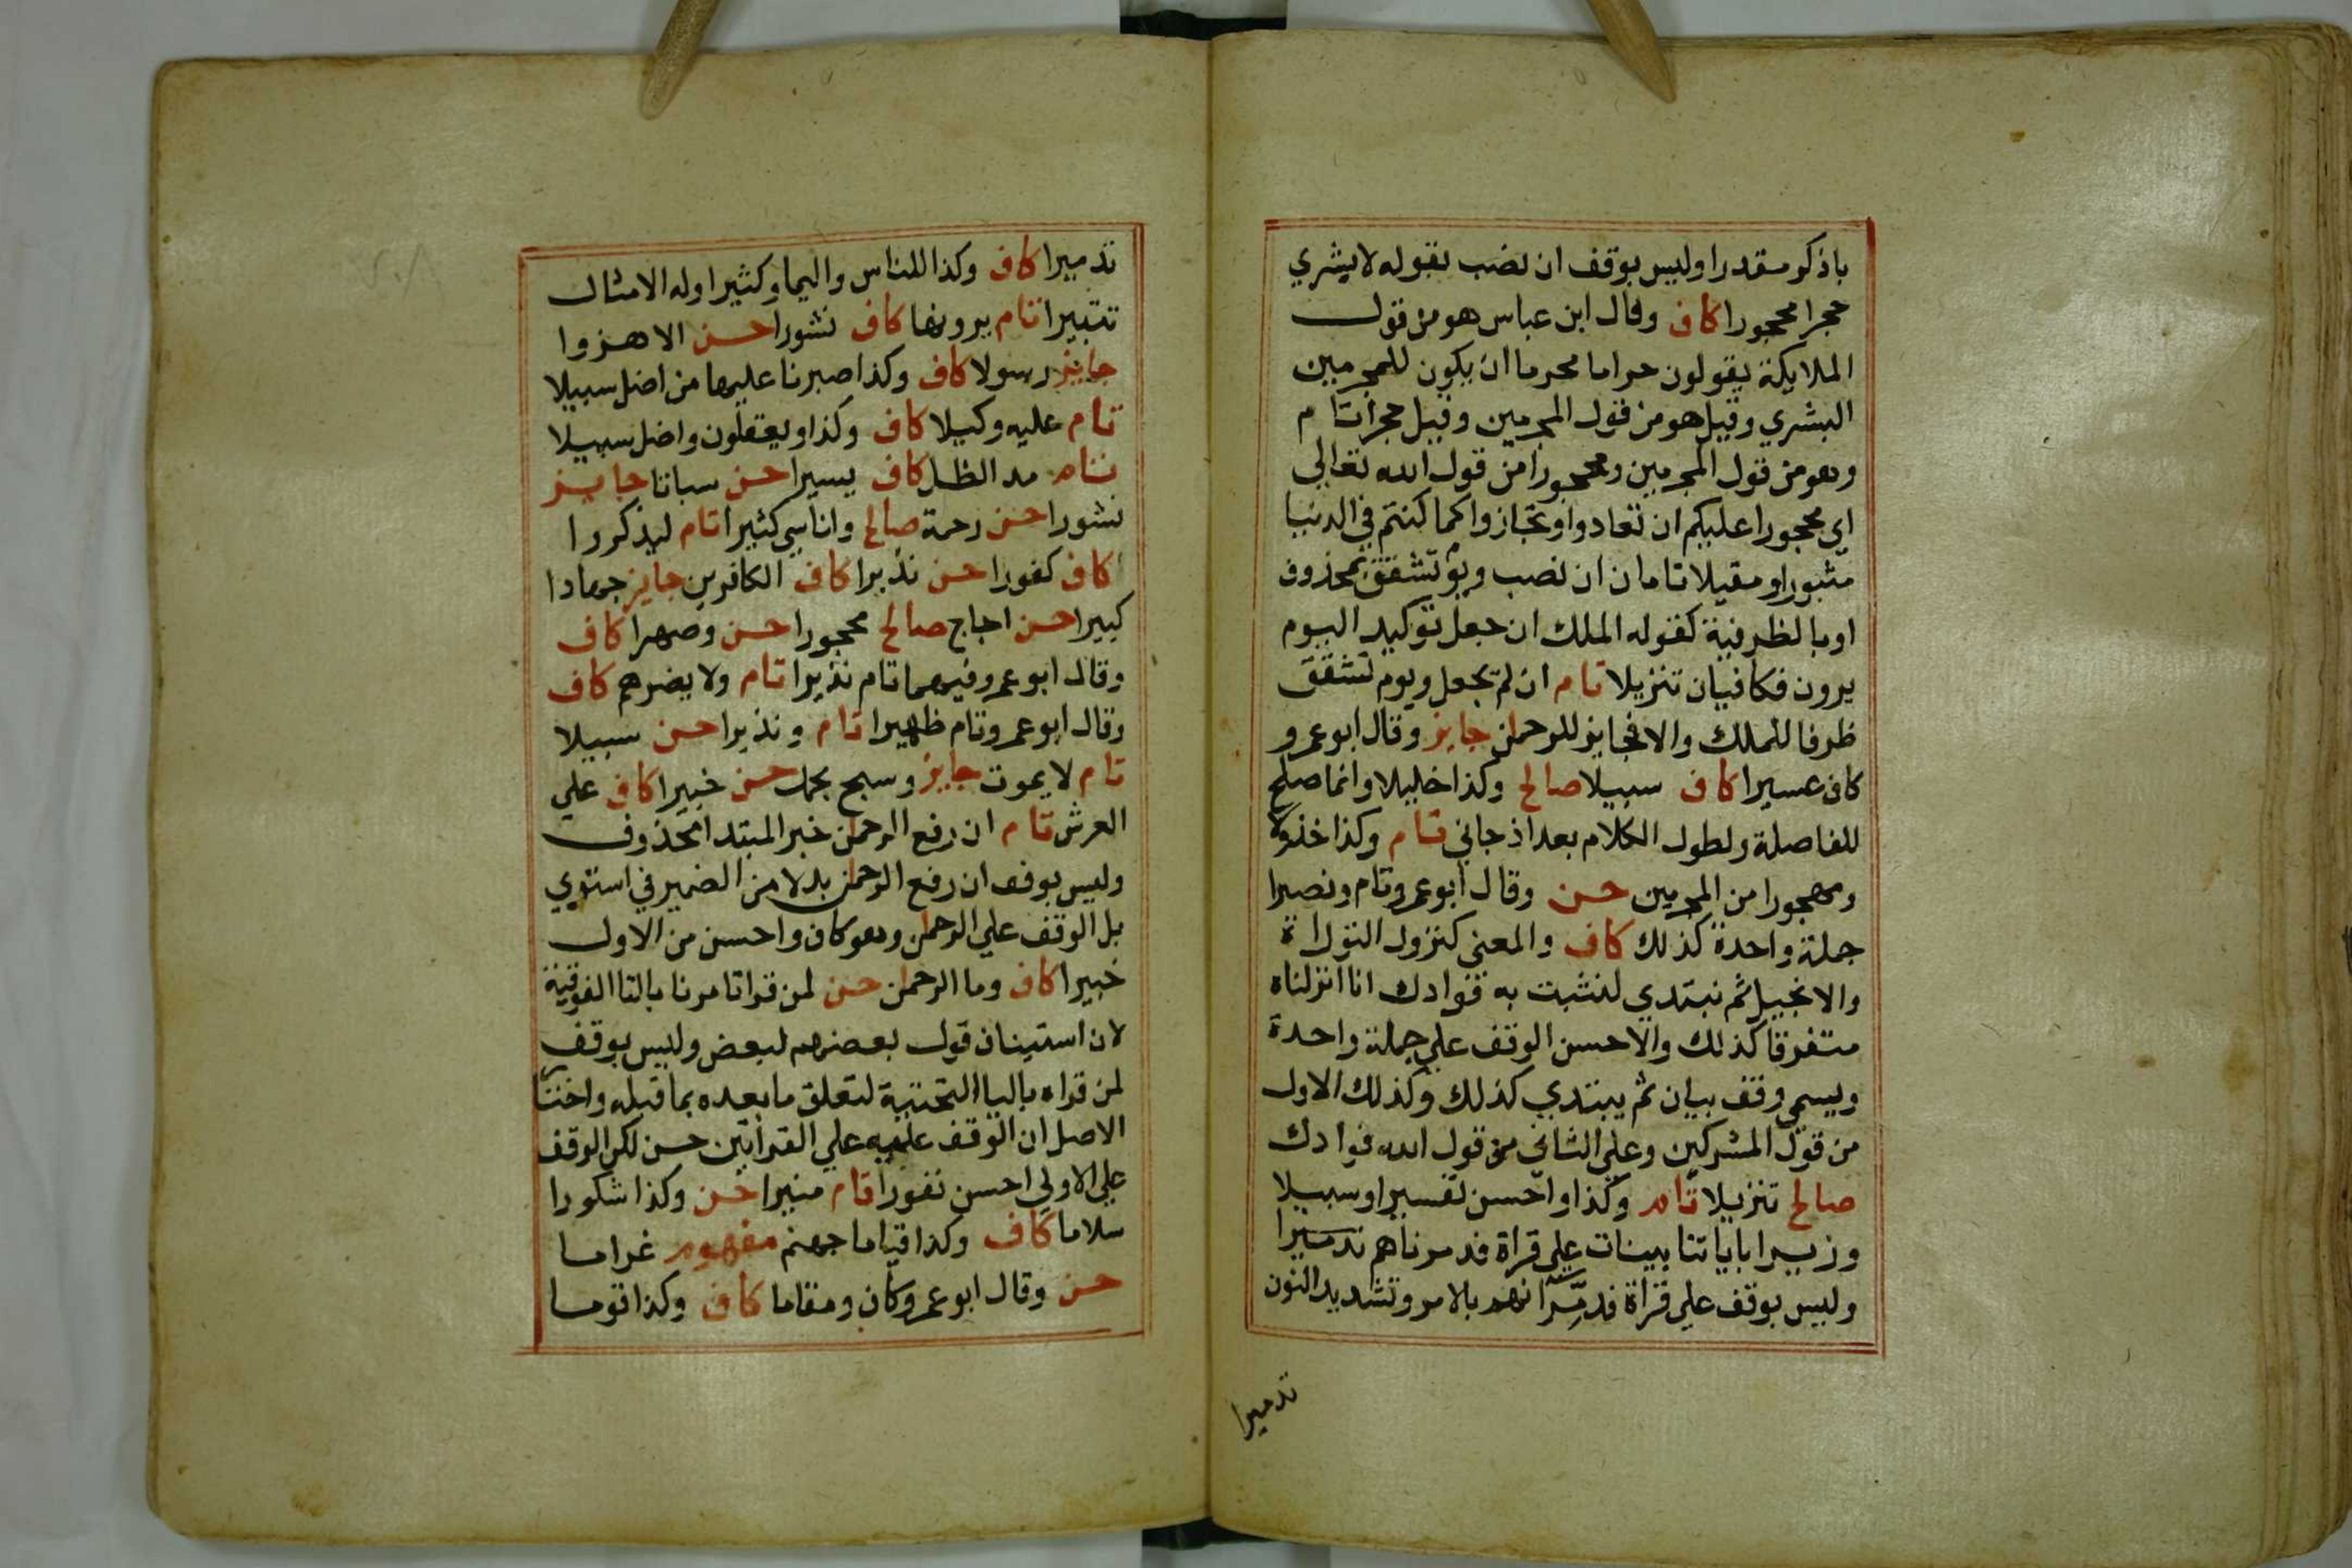 باذكر مقدرا وليس بوقف ان نصب بقوله لا بشري
حجرا محجورا كاف وقال ابن عباس هو من قول
الملايكة يقولون حراما محرما ان يكون للمجرمين
البشري وقيل هو من قول المجرمين وقيل حجرا تام
وهو من قول المجرمين ومحجورا من قول الله تعالي
اي محجورا عليكم ان تعادوا او تجازوا كما كنتم في الدنيا
مثبورا ومقيلا تامان ان نصب ويوم تشقق بمحذوف
او بالظرفية كقوله الملك ان جعل توكيد اليوم
يرون فكافيان تنزيلا تام ان لم يجعل ويوم تشقق
ظرفا للملك والا فجايز للرحمن جايز وقال ابو عمرو
كاف عسيرا كاف سبيلا صالح وكذا خليلا وانما صلح
للفاصلة ولطول الكلام بعد اذ جاني تام وكذا خذولا
ومهجورا من المجرمين حسن وقال ابو عمرو تام ونصيرا
جملة واحدة كذلك كاف والمعني كنزول التوراة
والانجيل ثم نبتدي لنثبت به فوادك انا انزلناه
متفرقا كذلك والاحسن الوقف علي جملة واحدة
ويسمي وقف بيان ثم يبتدي كذلك وكذلك الاول
من قول المشركين وعلي الثاني من قول الله فوادك
صالح تنزيلا تام وكذا واحسن تفسيرا وسبيلا
وزيرا باياتنا بينات علي قراة فدمرناهم تدميرا
وليس بوقف علي قراة فدمرانهم بالامر وتشديد النون
تدميرا
تدميرا كاف وكذا للناس واليما وكثيرا وله الامثال
تتبيرا تام يرونها كاف نشورا حسن الا هزوا
جايز رسولا كاف وكذا صبرنا عليها من اضل سبيلا
تام عليه وكيلا كاف وكذا او يعقلون واضل سبيلا
تام مد الظل كاف يسيرا حسن سباتا جايز
نشورا حسن رحمة صالح واناسي كثيرا تام ليذكروا
كاف كفورا حسن نذيرا كاف الكافرين جايز جهادا
كبيرا حسن اجاج صالح محجورا حسن وصهرا كاف
وقال ابو عمرو فيهما تام نذيرا تام ولا يضرهم كاف
وقال ابو عمرو تام ظهيرا تام ونذيرا حسن سبيلا
تام لا يموت جايز وسبح بحمده حسن خبيرا كاف علي
العرش تام ان رفع الرحمن خبر المبتدا محذوف
وليس بوقف ان رفع الرحمن بدلا من الضمير في استوي
بل الوقف علي الرحمن وهو كاف واحسن من الاول
خبيرا كاف وما الرحمن حسن لمن قرا تامرنا بالتا الفوقية
لان استيناف قول بعضهم لبعض وليس بوقف
لمن قراه باليا التحتية لتعلق ما بعده بما قبله واختار
الاصل ان الوقف عليه علي القراتين حسن لكن الوقف
علي الاولي احسن نفورا تام منيرا حسن وكذا شكورا
سلاما كاف وكذا قياما جهنم مفهوم غراما
حسن وقال ابو عمرو كاف ومقاما كاف وكذا قوما